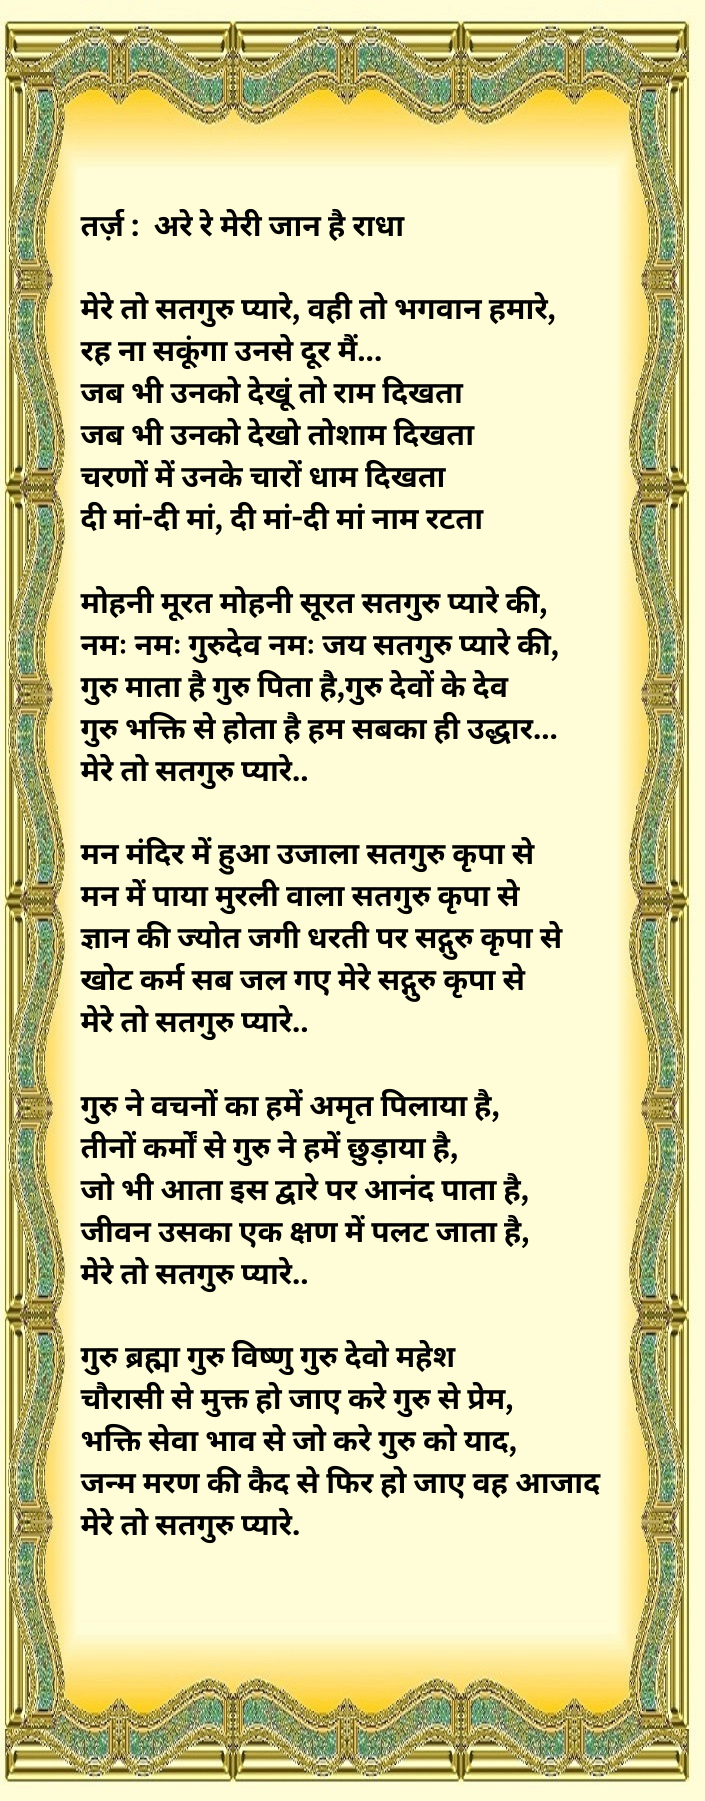 तर्ज़ :  अरे रे मेरी जान है राधा
मेरे तो सतगुरु प्यारे, वही तो भगवान हमारे,
रह ना सकूंगा उनसे दूर मैं...
जब भी उनको देखूं तो राम दिखता
जब भी उनको देखो तोशाम दिखता
चरणों में उनके चारों धाम दिखता
दी मां-दी मां, दी मां-दी मां नाम रटता
मोहनी मूरत मोहनी सूरत सतगुरु प्यारे की,
नमः नमः गुरुदेव नमः जय सतगुरु प्यारे की,
गुरु माता है गुरु पिता है,गुरु देवों के देव
गुरु भक्ति से होता है हम सबका ही उद्धार...
मेरे तो सतगुरु प्यारे..
मन मंदिर में हुआ उजाला सतगुरु कृपा से
मन में पाया मुरली वाला सतगुरु कृपा से
ज्ञान की ज्योत जगी धरती पर सद्गुरु कृपा से
खोट कर्म सब जल गए मेरे सद्गुरु कृपा से
मेरे तो सतगुरु प्यारे..
गुरु ने वचनों का हमें अमृत पिलाया है,
तीनों कर्मों से गुरु ने हमें छुड़ाया है,
जो भी आता इस द्वारे पर आनंद पाता है,
जीवन उसका एक क्षण में पलट जाता है,
मेरे तो सतगुरु प्यारे..
गुरु ब्रह्मा गुरु विष्णु गुरु देवो महेश
चौरासी से मुक्त हो जाए करे गुरु से प्रेम,
भक्ति सेवा भाव से जो करे गुरु को याद,
जन्म मरण की कैद से फिर हो जाए वह आजाद
मेरे तो सतगुरु प्यारे.